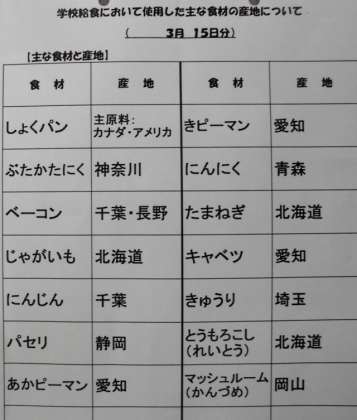 学校給食において使用した主な食材の産地について
( 3月 15日分)
【主な食材と産地】
食 材 産 地 食 材 産 地
しょくパン 主原料:
カナダ・アメリカ きピーマン 愛知
ぶたかたにく 神奈川 にんにく 青森
ベーコン 千葉・長野 たまねぎ 北海道
じゃがいも 北海道 キャベツ 愛知
にんじん 千葉 きゅうり 埼玉
パセリ 静岡 とうもろこし
(れいとう) 北海道
あかピーマン 愛知 マッシュルーム
(かんづめ) 岡山